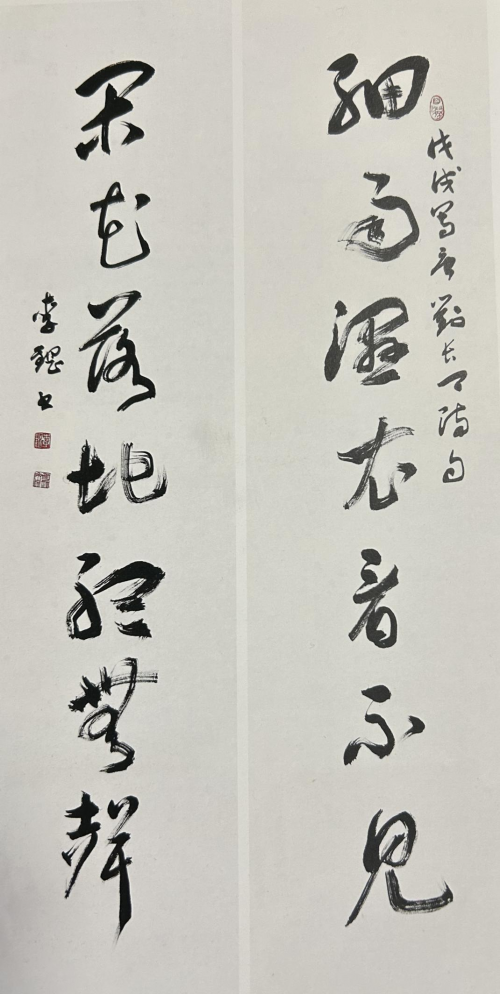 細雨濕衣看不見
戊戌寫唐劉長卿詩句
閑花落地聽無聲
李 書